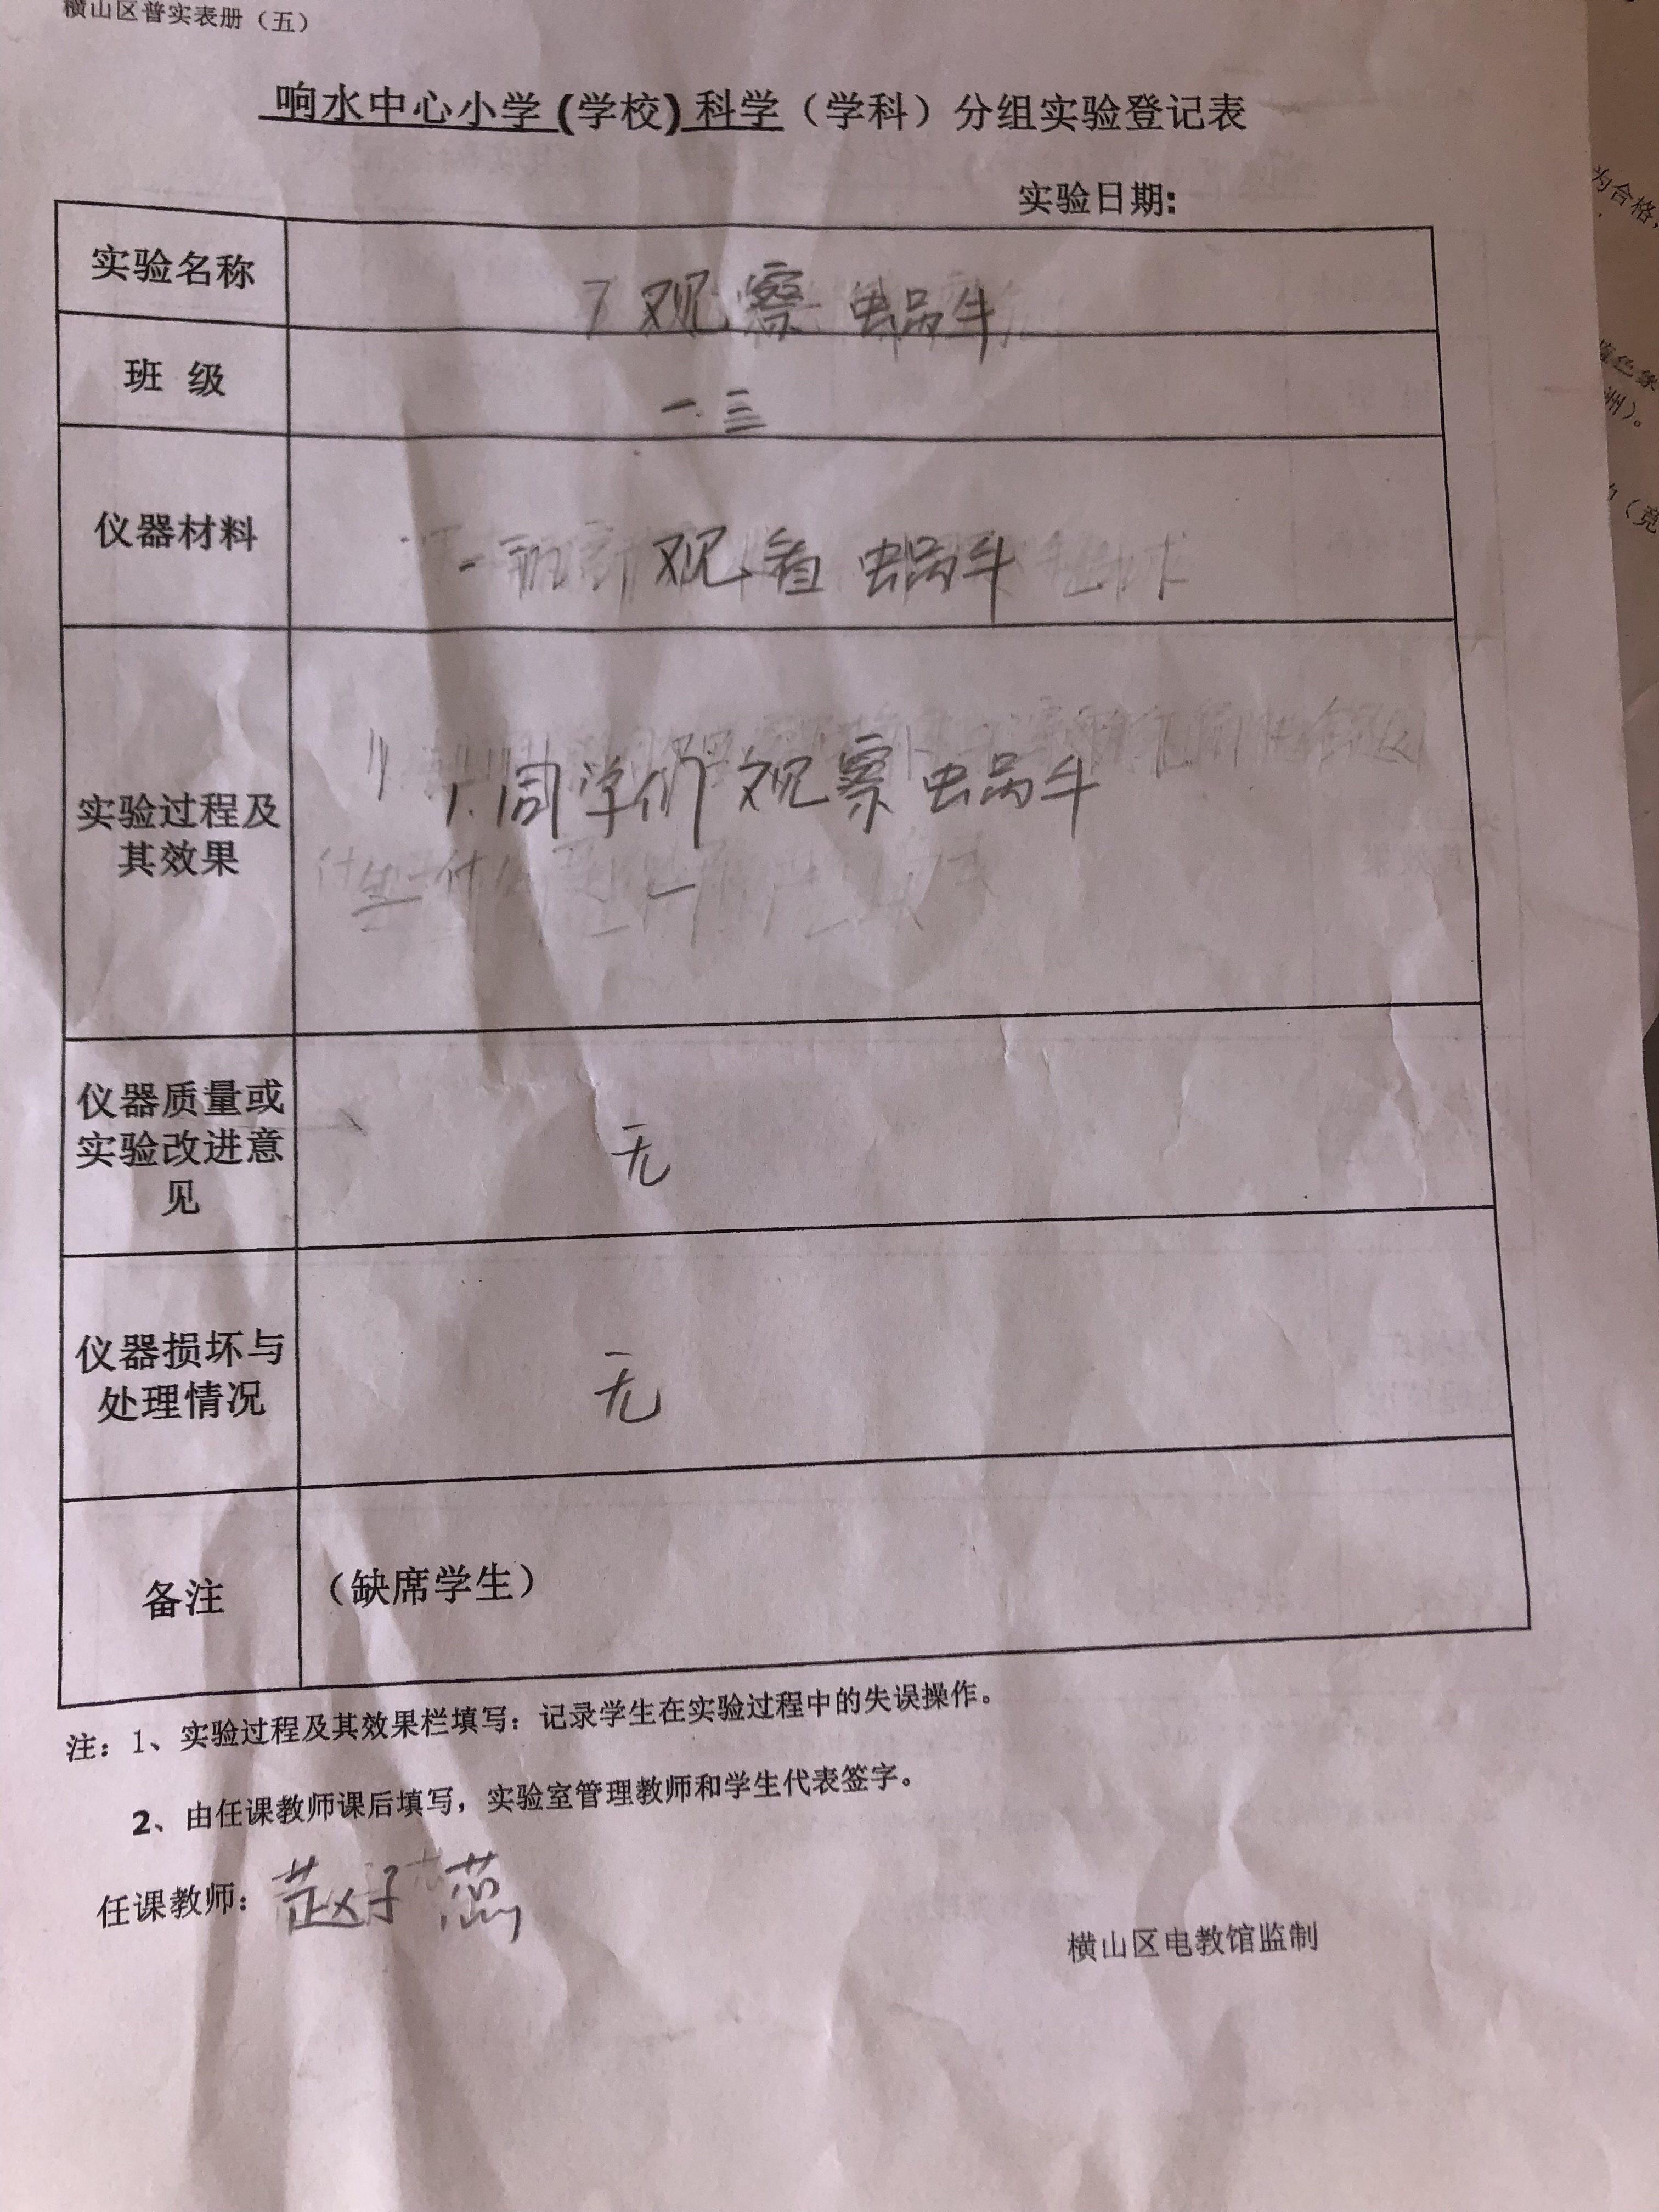 横山区普实表册（五）
响水中心小学(学校)科学（学科）分组实验登记表
实验日期:
实验名称
7 观察 蜗牛
班 级
一.三
仪器材料
观看 蜗牛
实验过程及
其效果
1.同学们观察蜗牛
仪器质量或
实验改进意
见
无
仪器损坏与
处理情况
无
备注
（缺席学生）
注：1、实验过程及其效果栏填写：记录学生在实验过程中的失误操作。
2、由任课教师课后填写，实验室管理教师和学生代表签字。
任课教师：赵子燕
横山区电教馆监制
为合格，